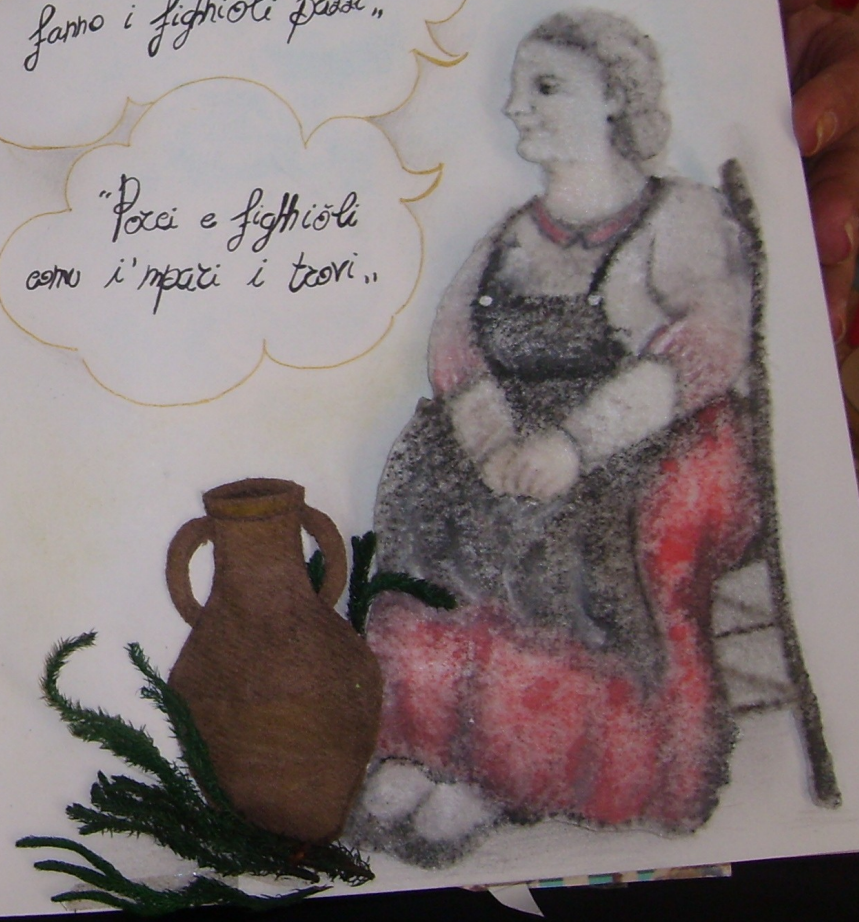 fanno i fighioli pazzi„
"Porci e fighiòli
comu i'mpari i trovi„